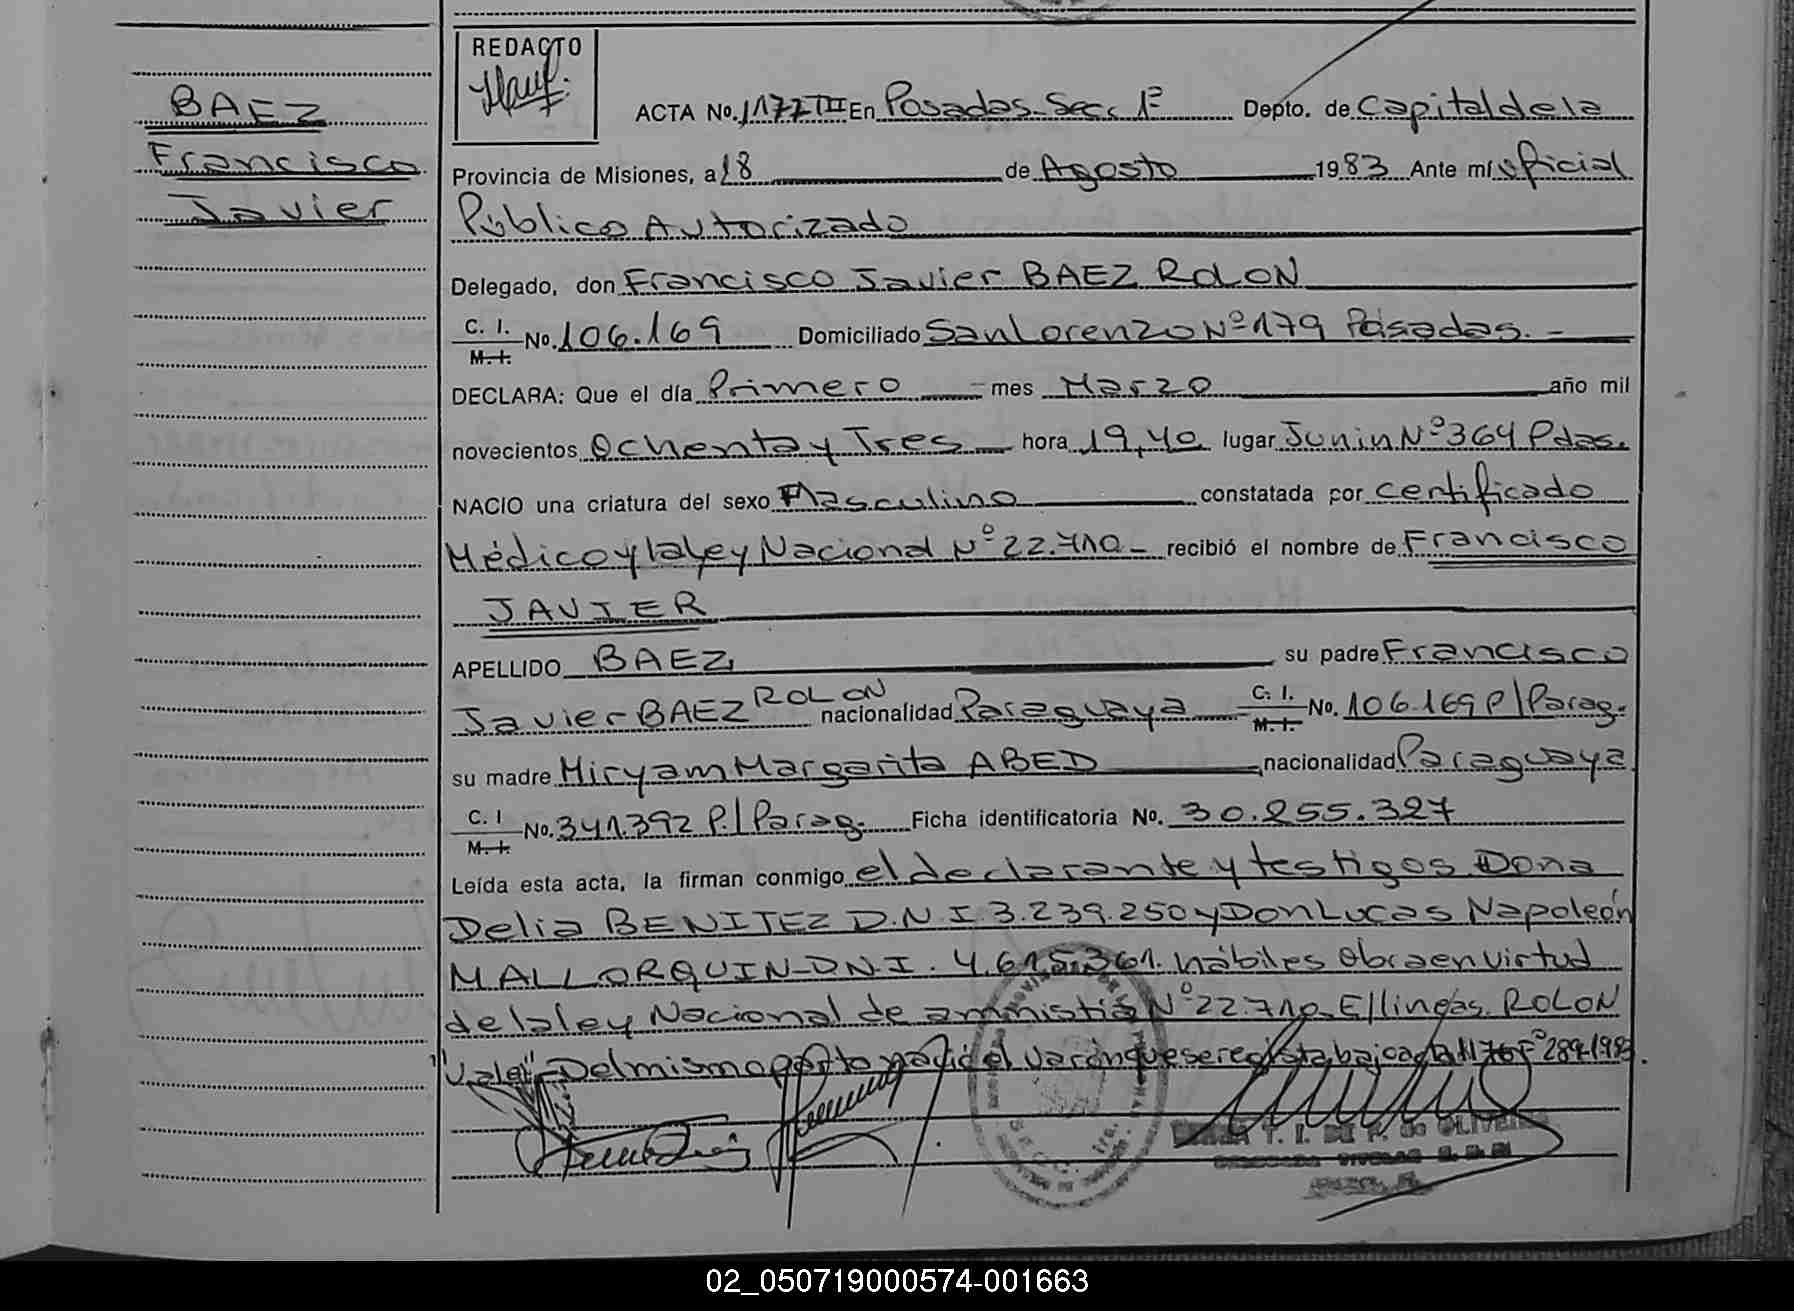 BAEZ
Francisco
Javier
REDACTO
ACTA No. 1177 TIII En Posadas - Sec. 1º Depto. de Capital de la
Provincia de Misiones, a 18 de Agosto 1983 Ante mí Oficial
Público Autorizado
Delegado, don Francisco Javier BAEZ ROLON
C. I. M. I. No. 106.169 Domiciliado San Lorenzo Nº 179 Posadas. -
DECLARA: Que el día Primero - mes Marzo año mil
novecientos Ochenta y Tres hora 19,40 lugar Junin Nº 364 Pdas.
NACIO una criatura del sexo Masculino constatada por Certificado
Médico y la ley Nacional Nº 22.710 - recibió el nombre de Francisco
JAVIER
APELLIDO BAEZ su padre Francisco
Javier BAEZ ROLON nacionalidad Paraguaya C. I. M. I. No. 106.169 P/Parag.
su madre Miryam Margarita ABED nacionalidad Paraguaya
C. I M. I. No. 341.392 P./Parag. Ficha identificatoria No. 30.255.327
Leída esta acta, la firman conmigo el declarante y testigos Dona
Delia BENITEZ D.N.I 3.239.250 y Don Lucas Napoleón
MALLORQUIN - D.N.I. 4.615.361. hábiles Obra en virtud
de la ley Nacional de amnistia Nº 22.710 - E/lineas. ROLON
"Vale" - Del mismo parto nació el varón que se registra bajo acta 1176 Fº 289-1983.
02_050719000574-001663